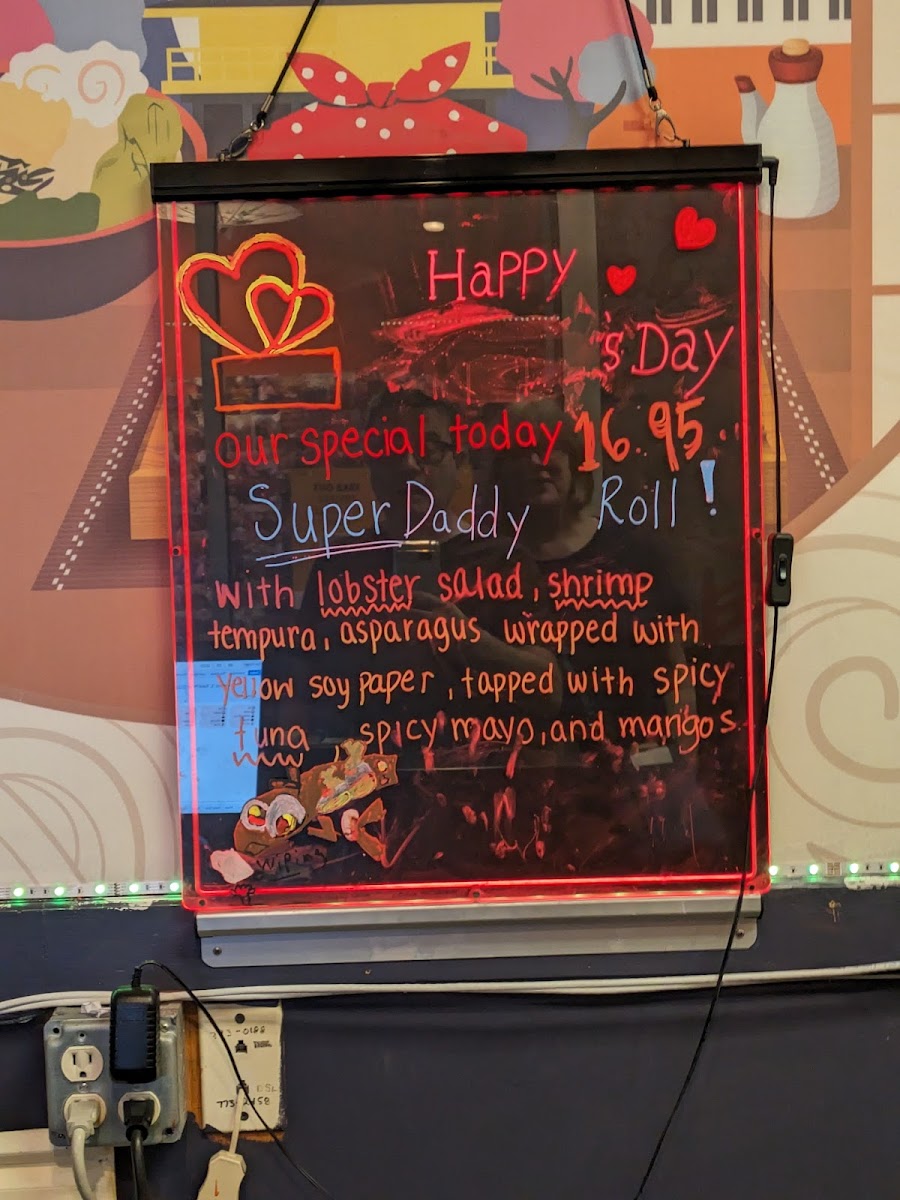 Happy
's Day
our special today 16.95
Super Daddy Roll!
with lobster salad, shrimp
tempura, asparagus wrapped with
yellow soy paper, tapped with spicy
tuna, spicy mayo, and mangos
wiping